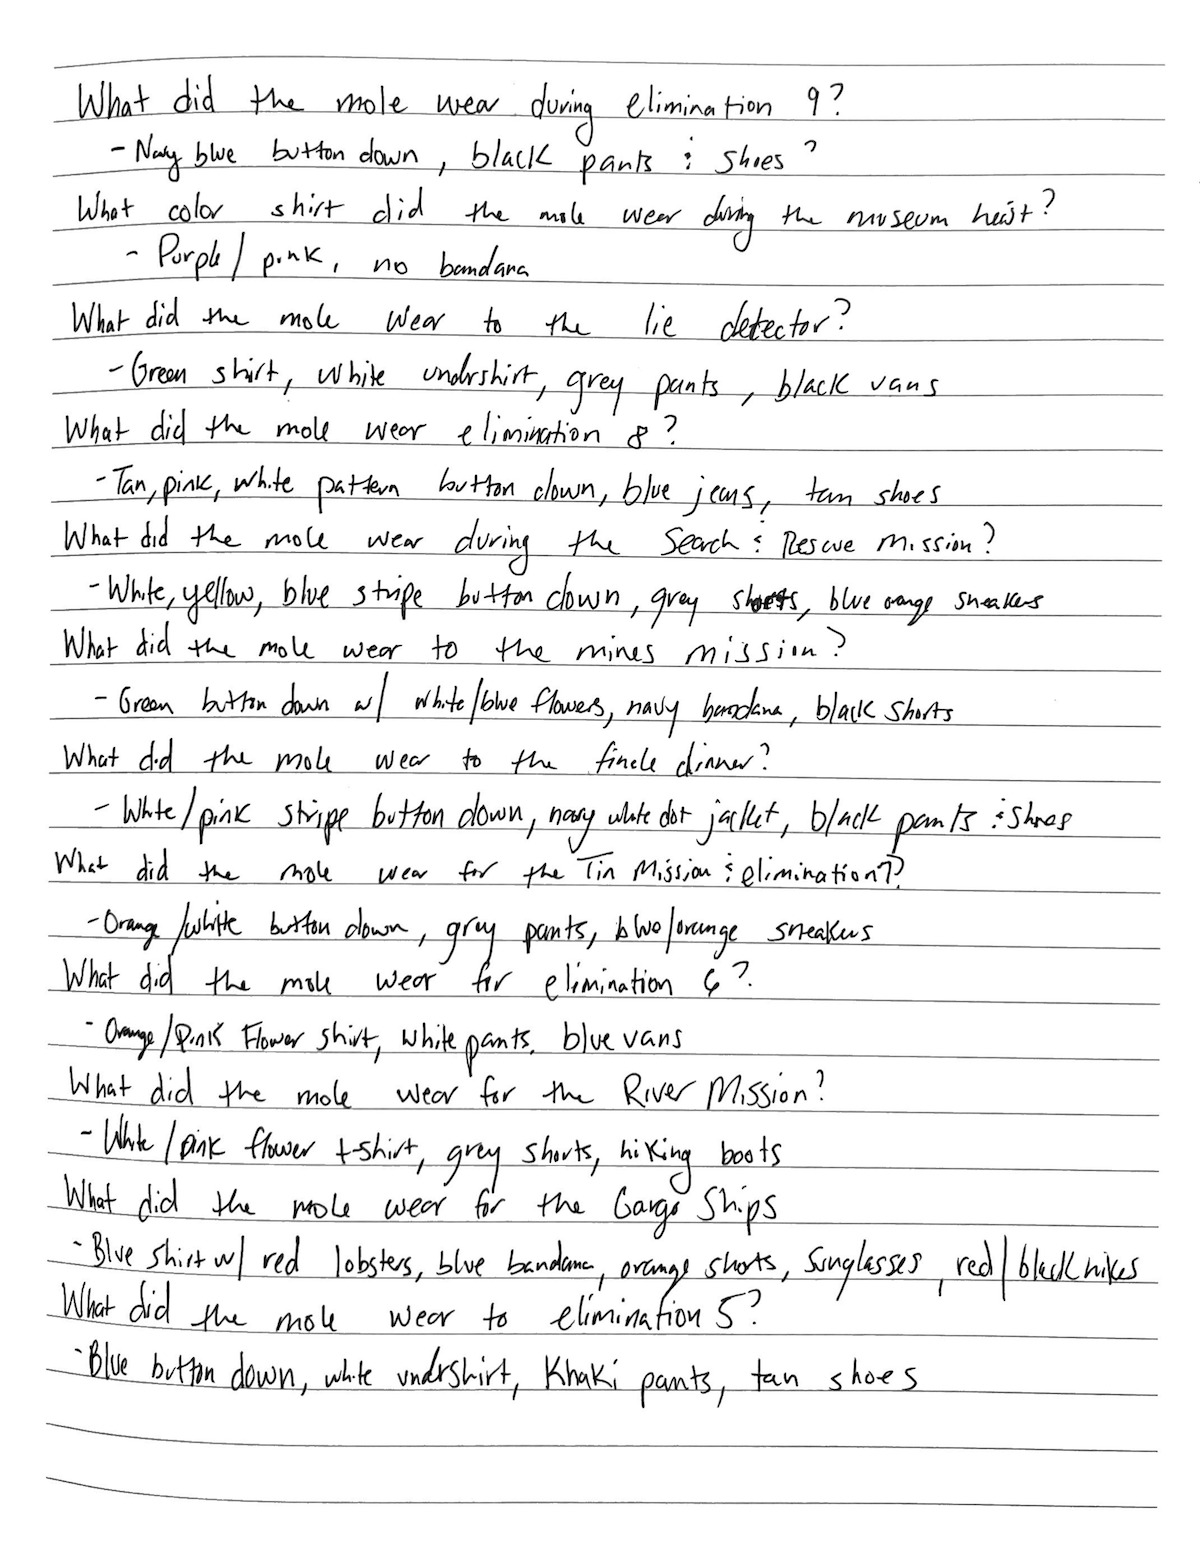 What did the mole wear during elimination 9?
- Navy blue button down, black pants & shoes?
What color shirt did the mole wear during the museum heist?
- Purple/pink, no bandana
What did the mole wear to the lie detector?
- Green shirt, white undrshirt, grey pants, black vans
What did the mole wear elimination 8?
- Tan, pink, white pattern button down, blue jeans, tan shoes
What did the mole wear during the Search & Rescue Mission?
- White, yellow, blue stripe button down, grey shorts, blue orange sneakers
What did the mole wear to the mines mission?
- Green button down w/ white/blue flowers, navy bandana, black shorts
What did the mole wear to the finale dinner?
- White/pink stripe button down, navy white dot jacket, black pants & shoes
What did the mole wear for the Tin Mission & elimination 7?
- Orange/white button down, grey pants, blue/orange sneakers
What did the mole wear for elimination 6?
- Orange/Pink Flower shirt, white pants, blue vans
What did the mole wear for the River Mission?
- White/pink flower t-shirt, grey shorts, hiking boots
What did the mole wear for the Cargo Ships
- Blue shirt w/ red lobsters, blue bandana, orange shorts, sunglasses, red/black nikes
What did the mole wear to elimination 5?
- Blue button down, white undrshirt, Khaki pants, tan shoes